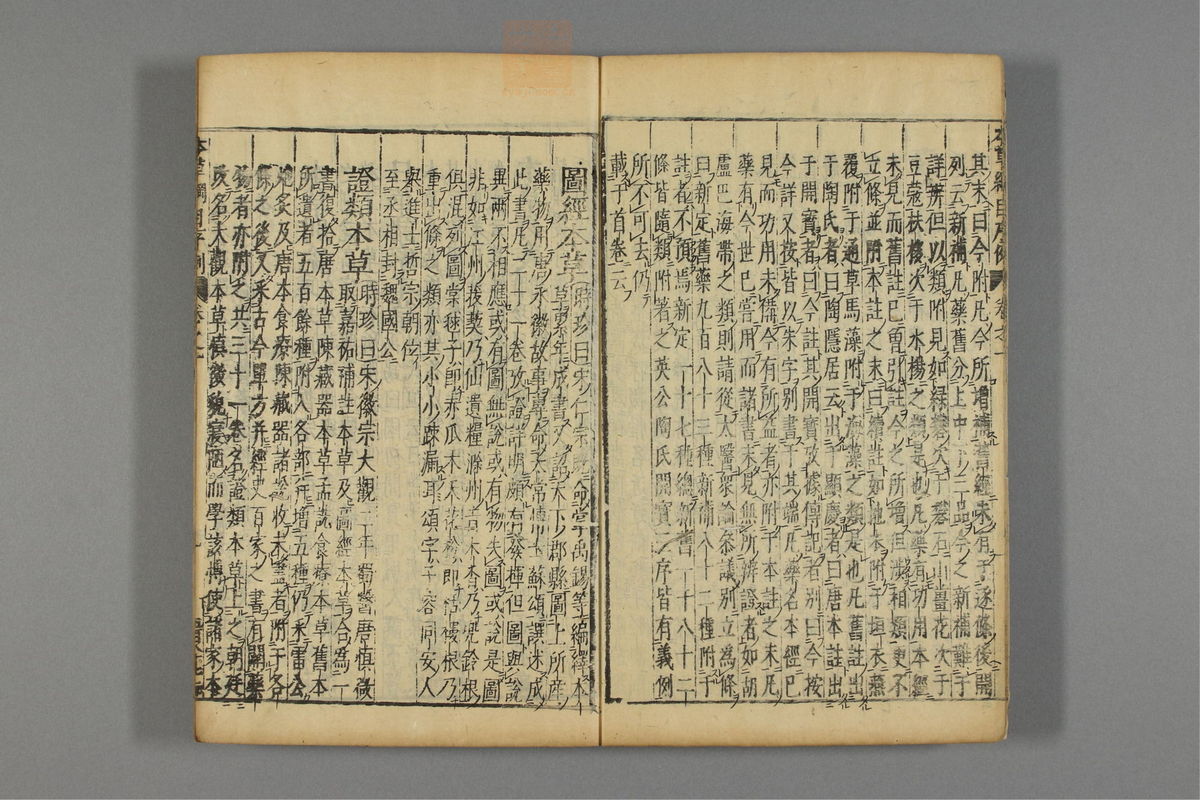 其末曰今附凡今所增補舊經未有于逐條後開
列云新補凡藥舊分上中下三品今之新補難于
詳辨但以類附見如綠礬次于礬石山薑花次于
豆蔻扶栘次于水楊之類是也凡藥有功用本經
未見而舊註已曾引註今之所增但涉相類更不
立條並附本註之末曰續註如地衣附于垣衣燕
覆附于通草馬藻附于海藻之類是也凡舊註出
于陶氏者曰陶隱居云出于顯慶者曰唐本註出
于開寶者曰今註其開寶攷據傳記者别曰今按
今詳又按皆以朱字别書于其端凡藥名本經已
見而功用未備今有所益者亦附于本註之末凡
藥有今世已嘗用而諸書未見無所辨證者如胡
盧巴海帶之類則請從太醫衆論參議别立爲條
曰新定舊藥九百八十三種新補八十二種附于
註者不預焉新定一十七種總新舊一千八十二
條皆隨類附著之英公陶氏開寶三序皆有義例
所不可去仍
載于首卷云
圖經本草時珍曰宋仁宗既命掌禹錫等編繹本
草累年成書又詔天下郡縣圖上所産
藥物用唐永徽故事專命太常博士蘇頌譔述成
此書凡二十一卷攷證詳明頗有發揮但圖與說
異兩不相應或有圖無說或有物失圖或說是圖
非如江州菝葜乃仙遺糧滁州青木香乃兜鈴根
俱混列圖棠毬子即赤瓜木天花粉即栝樓根乃
重出條之類亦其小小疎漏耳頌字子容同安人
舉進士哲宗朝位
至丞相封魏國公
證類本草時珍曰宋徽宗大觀二年蜀醫唐慎微
取嘉祐補註本草及圖經本草合爲一
書復拾唐本草陳藏器本草孟詵食療本草舊本
所遺者五百餘種附入各部并增五種仍采雷公
炮炙及唐本食療陳藏器諸說收未盡者附于各
條之後又采古今單方并經史百家之書有關藥
物者亦附之共三十一卷名證類本草上之朝廷
改名大觀本草慎微貌寢陋而學該博使諸家本